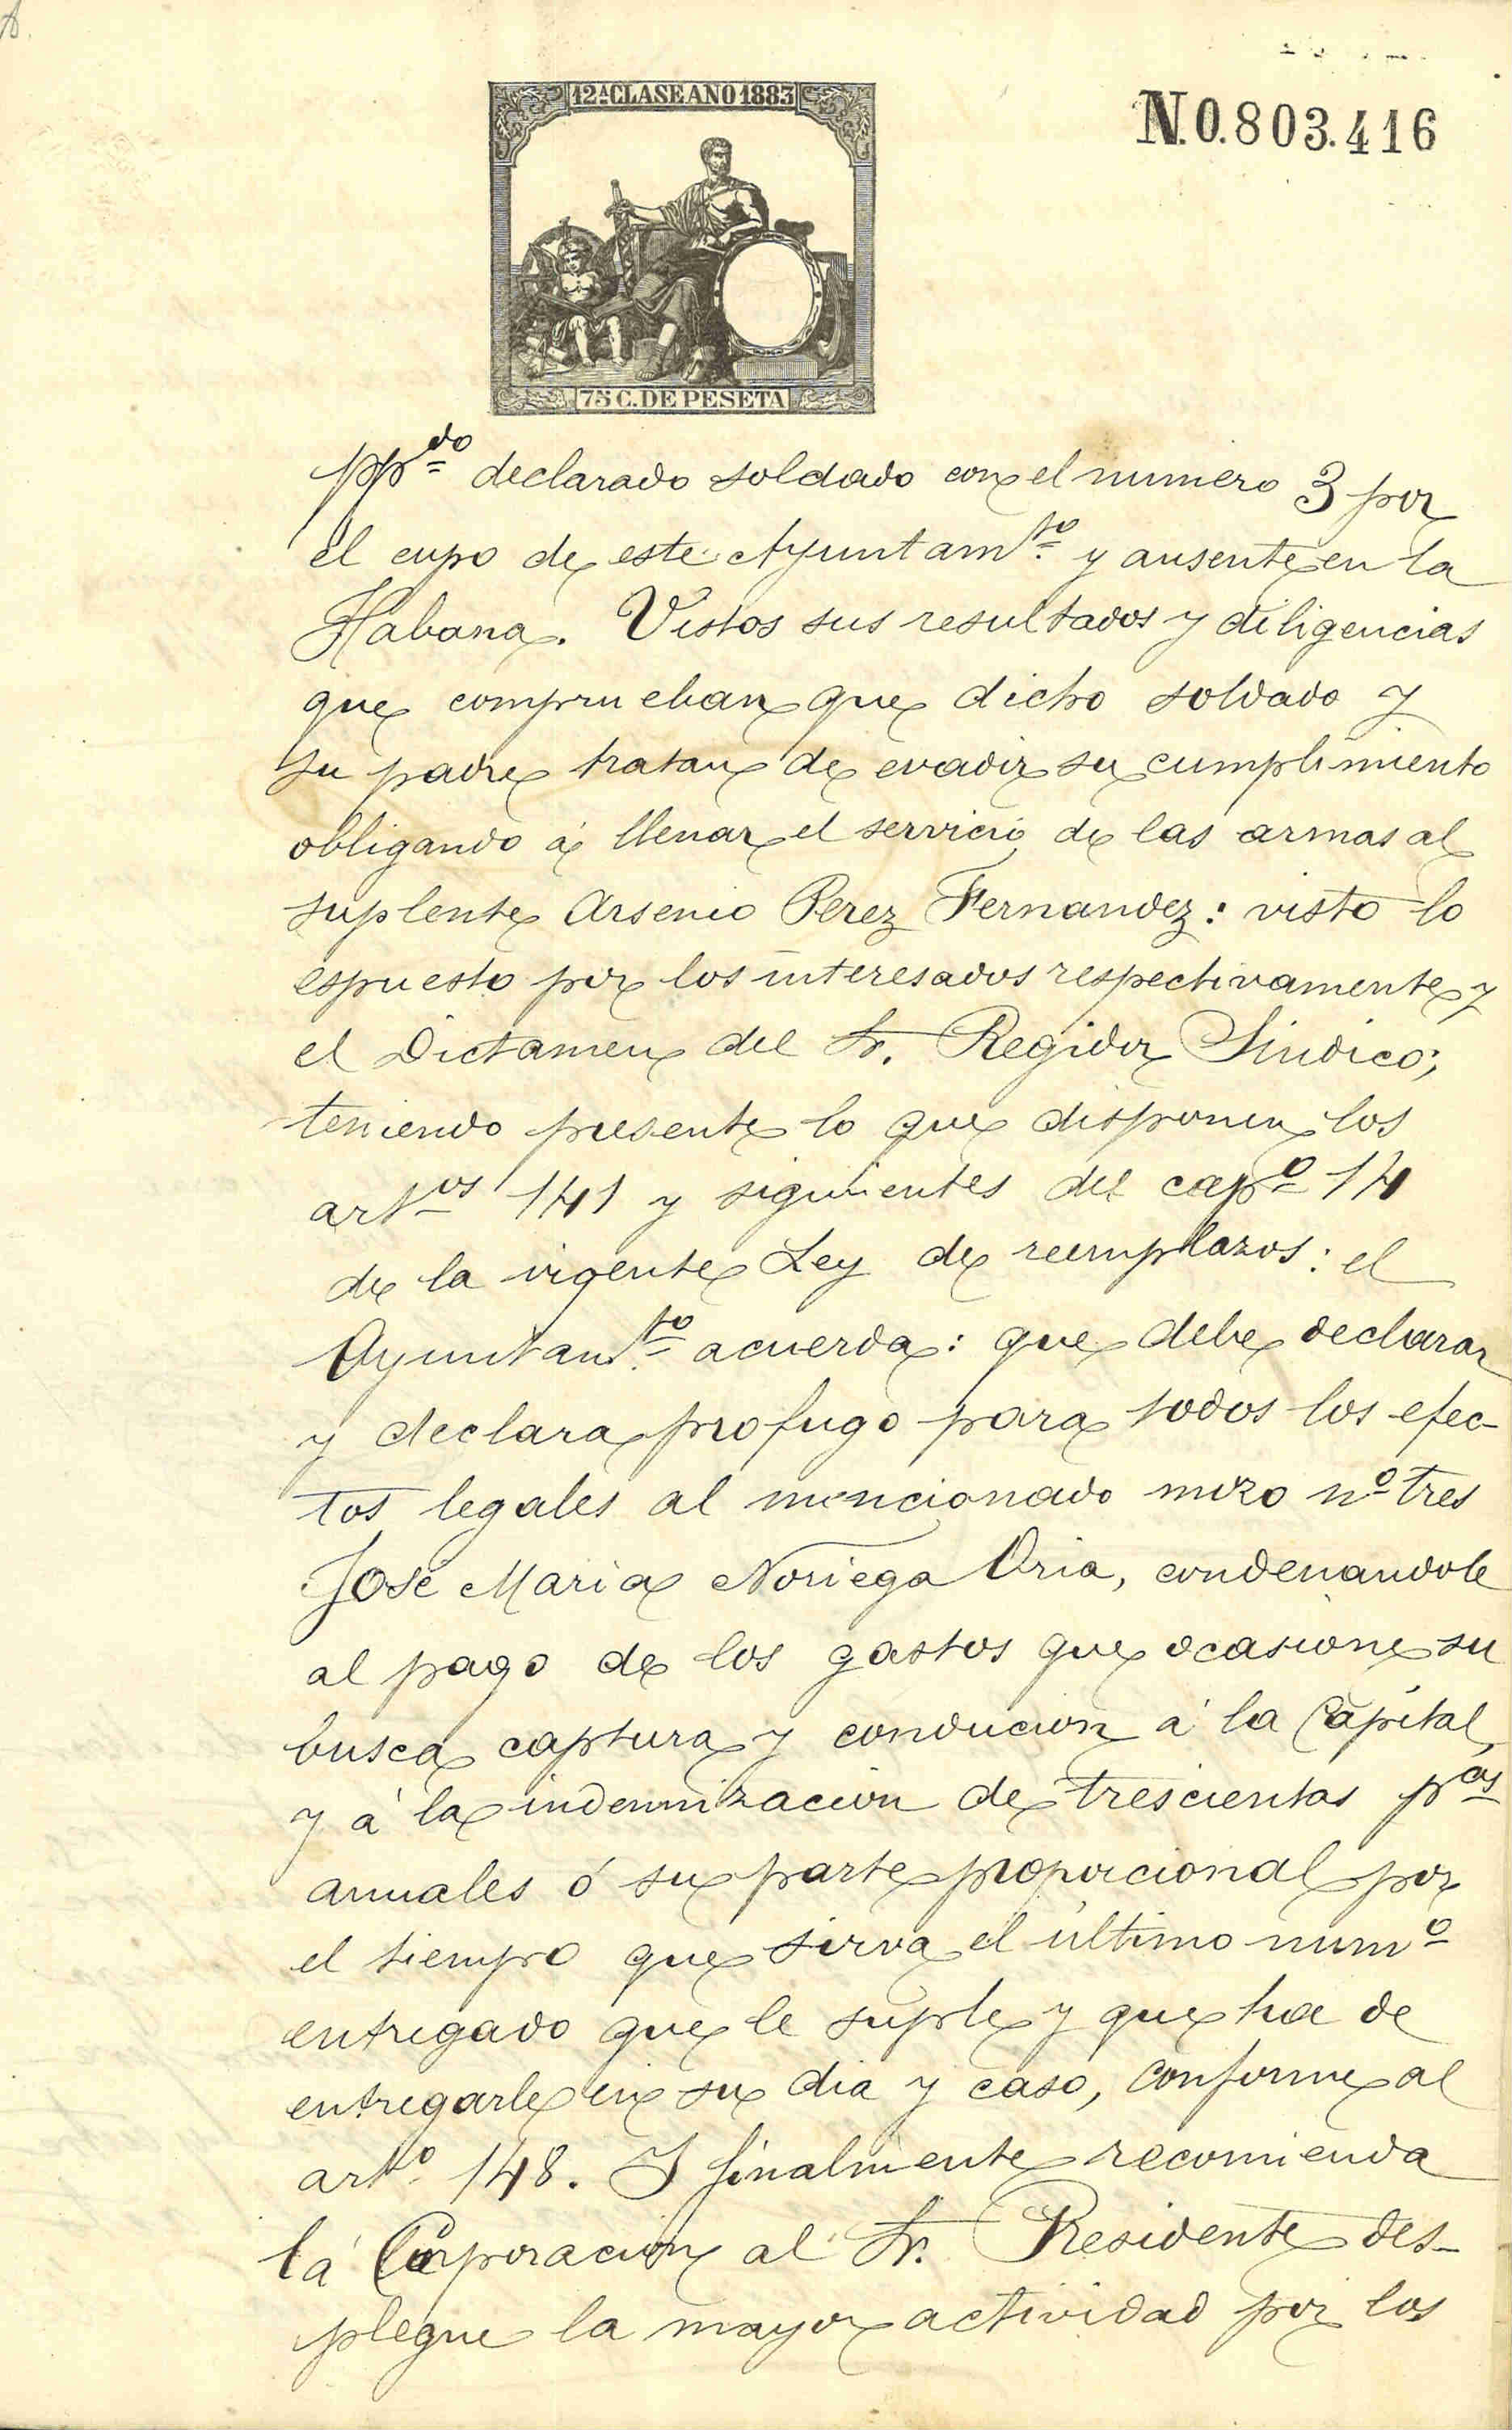 12.ª CLASE AÑO 1883
N.0.803.416
75 C. DE PESETA
pp.do declarado soldado con el numero 3 por
el cupo de este Ayuntam.to y ausente en la
Habana. Vistos sus resultados y diligencias
que comprueban que dicho soldado y
su padre tratan de evadir su cumplimiento
obligando á llenar el servicio de las armas al
suplente Arsenio Perez Fernandez: visto lo
espuesto por los interesados respectivamente y
el Dictamen del Sr. Regidor Sindico;
teniendo presente lo que disponen los
art.os 141 y siguientes del cap.o 14
de la vigente Ley de reemplazos: el
Ayuntam.to acuerda: que debe declarar
y declara profugo para todos los efec-
tos legales al mencionado mozo nº tres
José Maria Noriega Oria, condenandole
al pago de los gastos que ocasione su
busca captura y conducion á la Capital,
y á la indemnizacion de trescientas p.as
anuales ó su parte proporcional por
el tiempo que sirva el último num.o
entregado que le suple y que ha de
entregarle en su dia y caso, conforme al
art.o 148. Y finalmente recomienda
la Corporacion al Sr. Presidente des-
plegue la mayor actividad por los